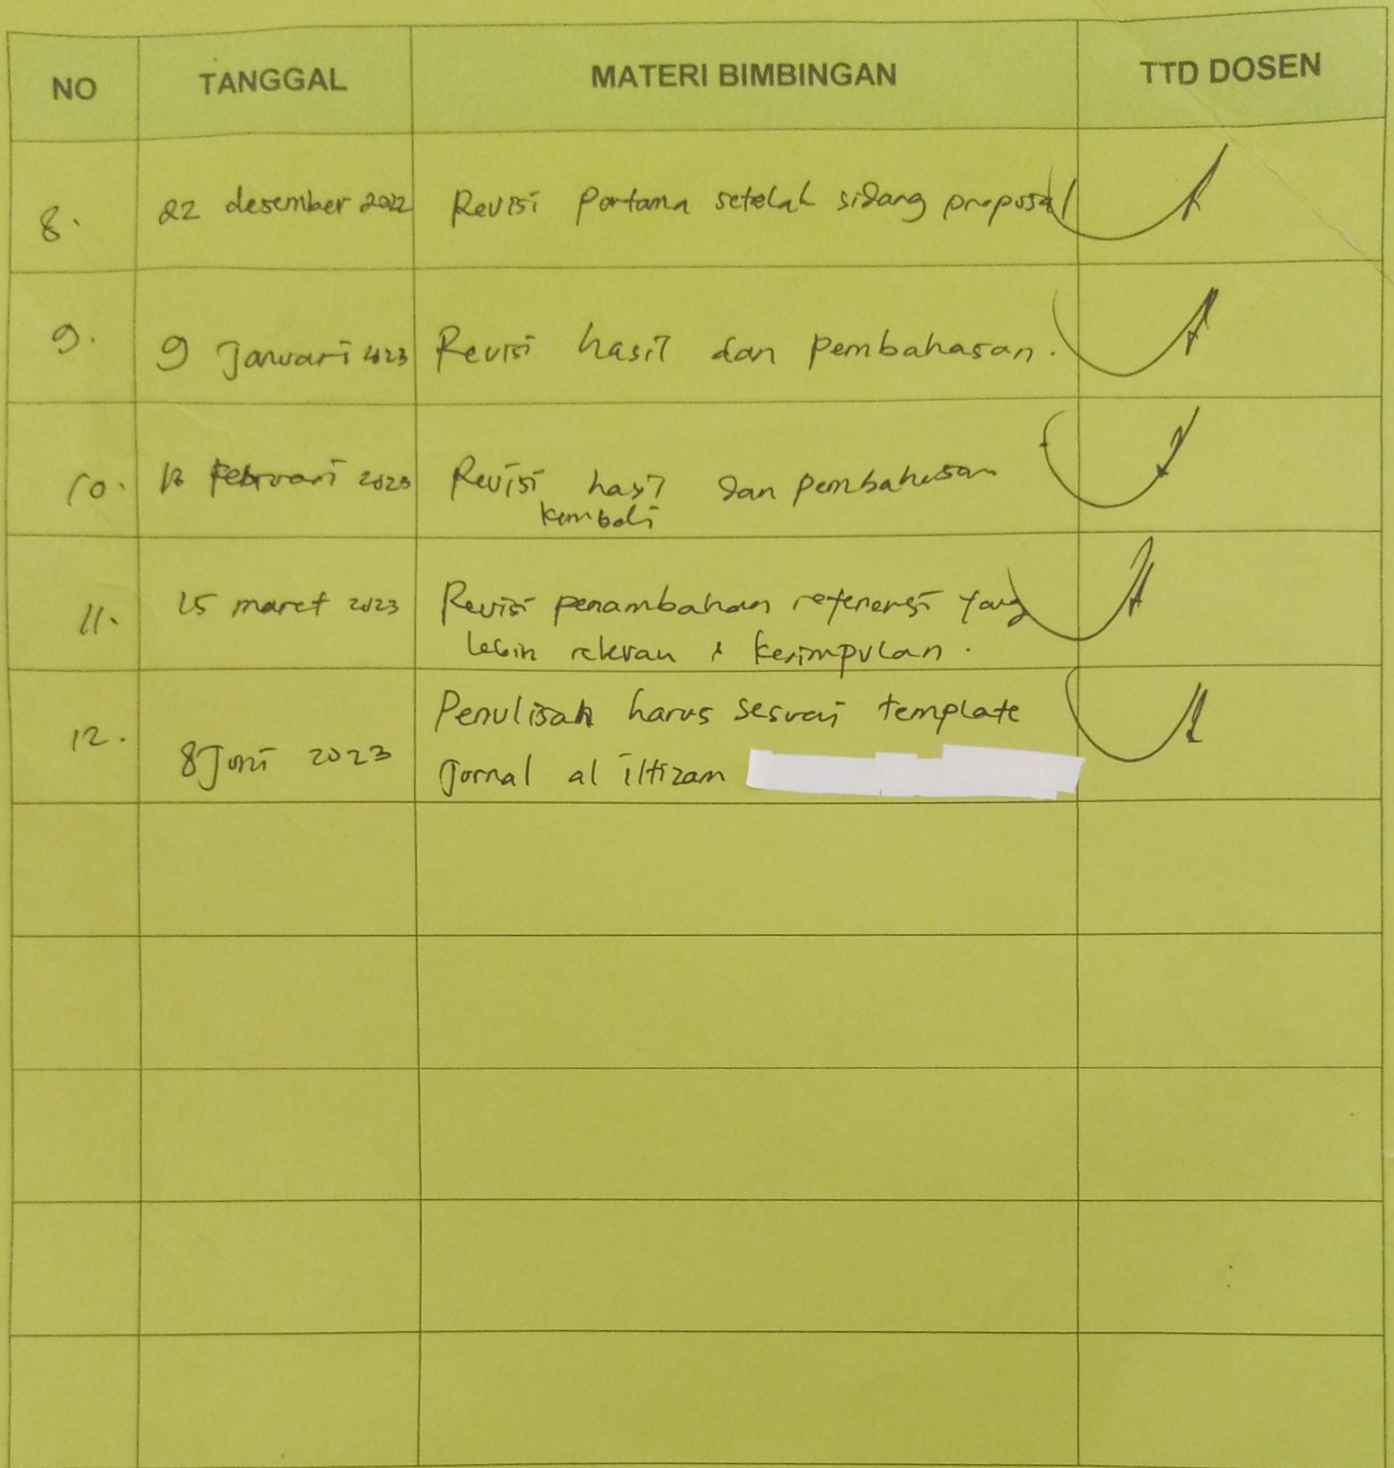 NO TANGGAL MATERI BIMBINGAN TTD DOSEN
8. 22 desember 2022 Revisi Pertama setelah sidang proposal
9. 9 Januari 2023 Revisi hasil dan pembahasan.
10. Februari 2023 Revisi hasil dan pembahasan
kembali
11. 15 maret 2023 Revisi penambahan referensi yang
lebih relevan & kesimpulan.
12. 8 Juni 2023 Penulisan harus sesuai template
Jurnal al iltizam